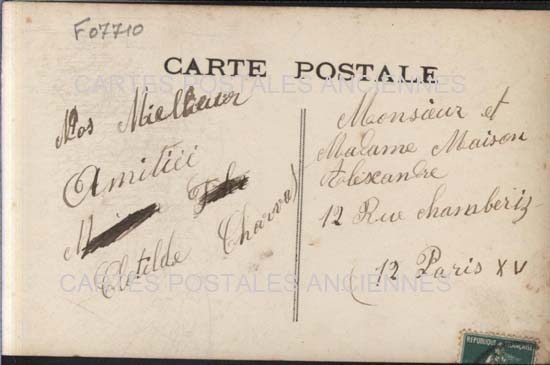 F07710
CARTE POSTALE
CARTES POSTALES ANCIENNES
Mos Mielleur
Amitiei
Clotilde Charvas
Monsieur et
Madame Maison
Alexandre
12 Rue Chambériz
12 Paris XV
CARTES POSTALES ANCIENNES
REPUBLIQUE FRANÇAISE